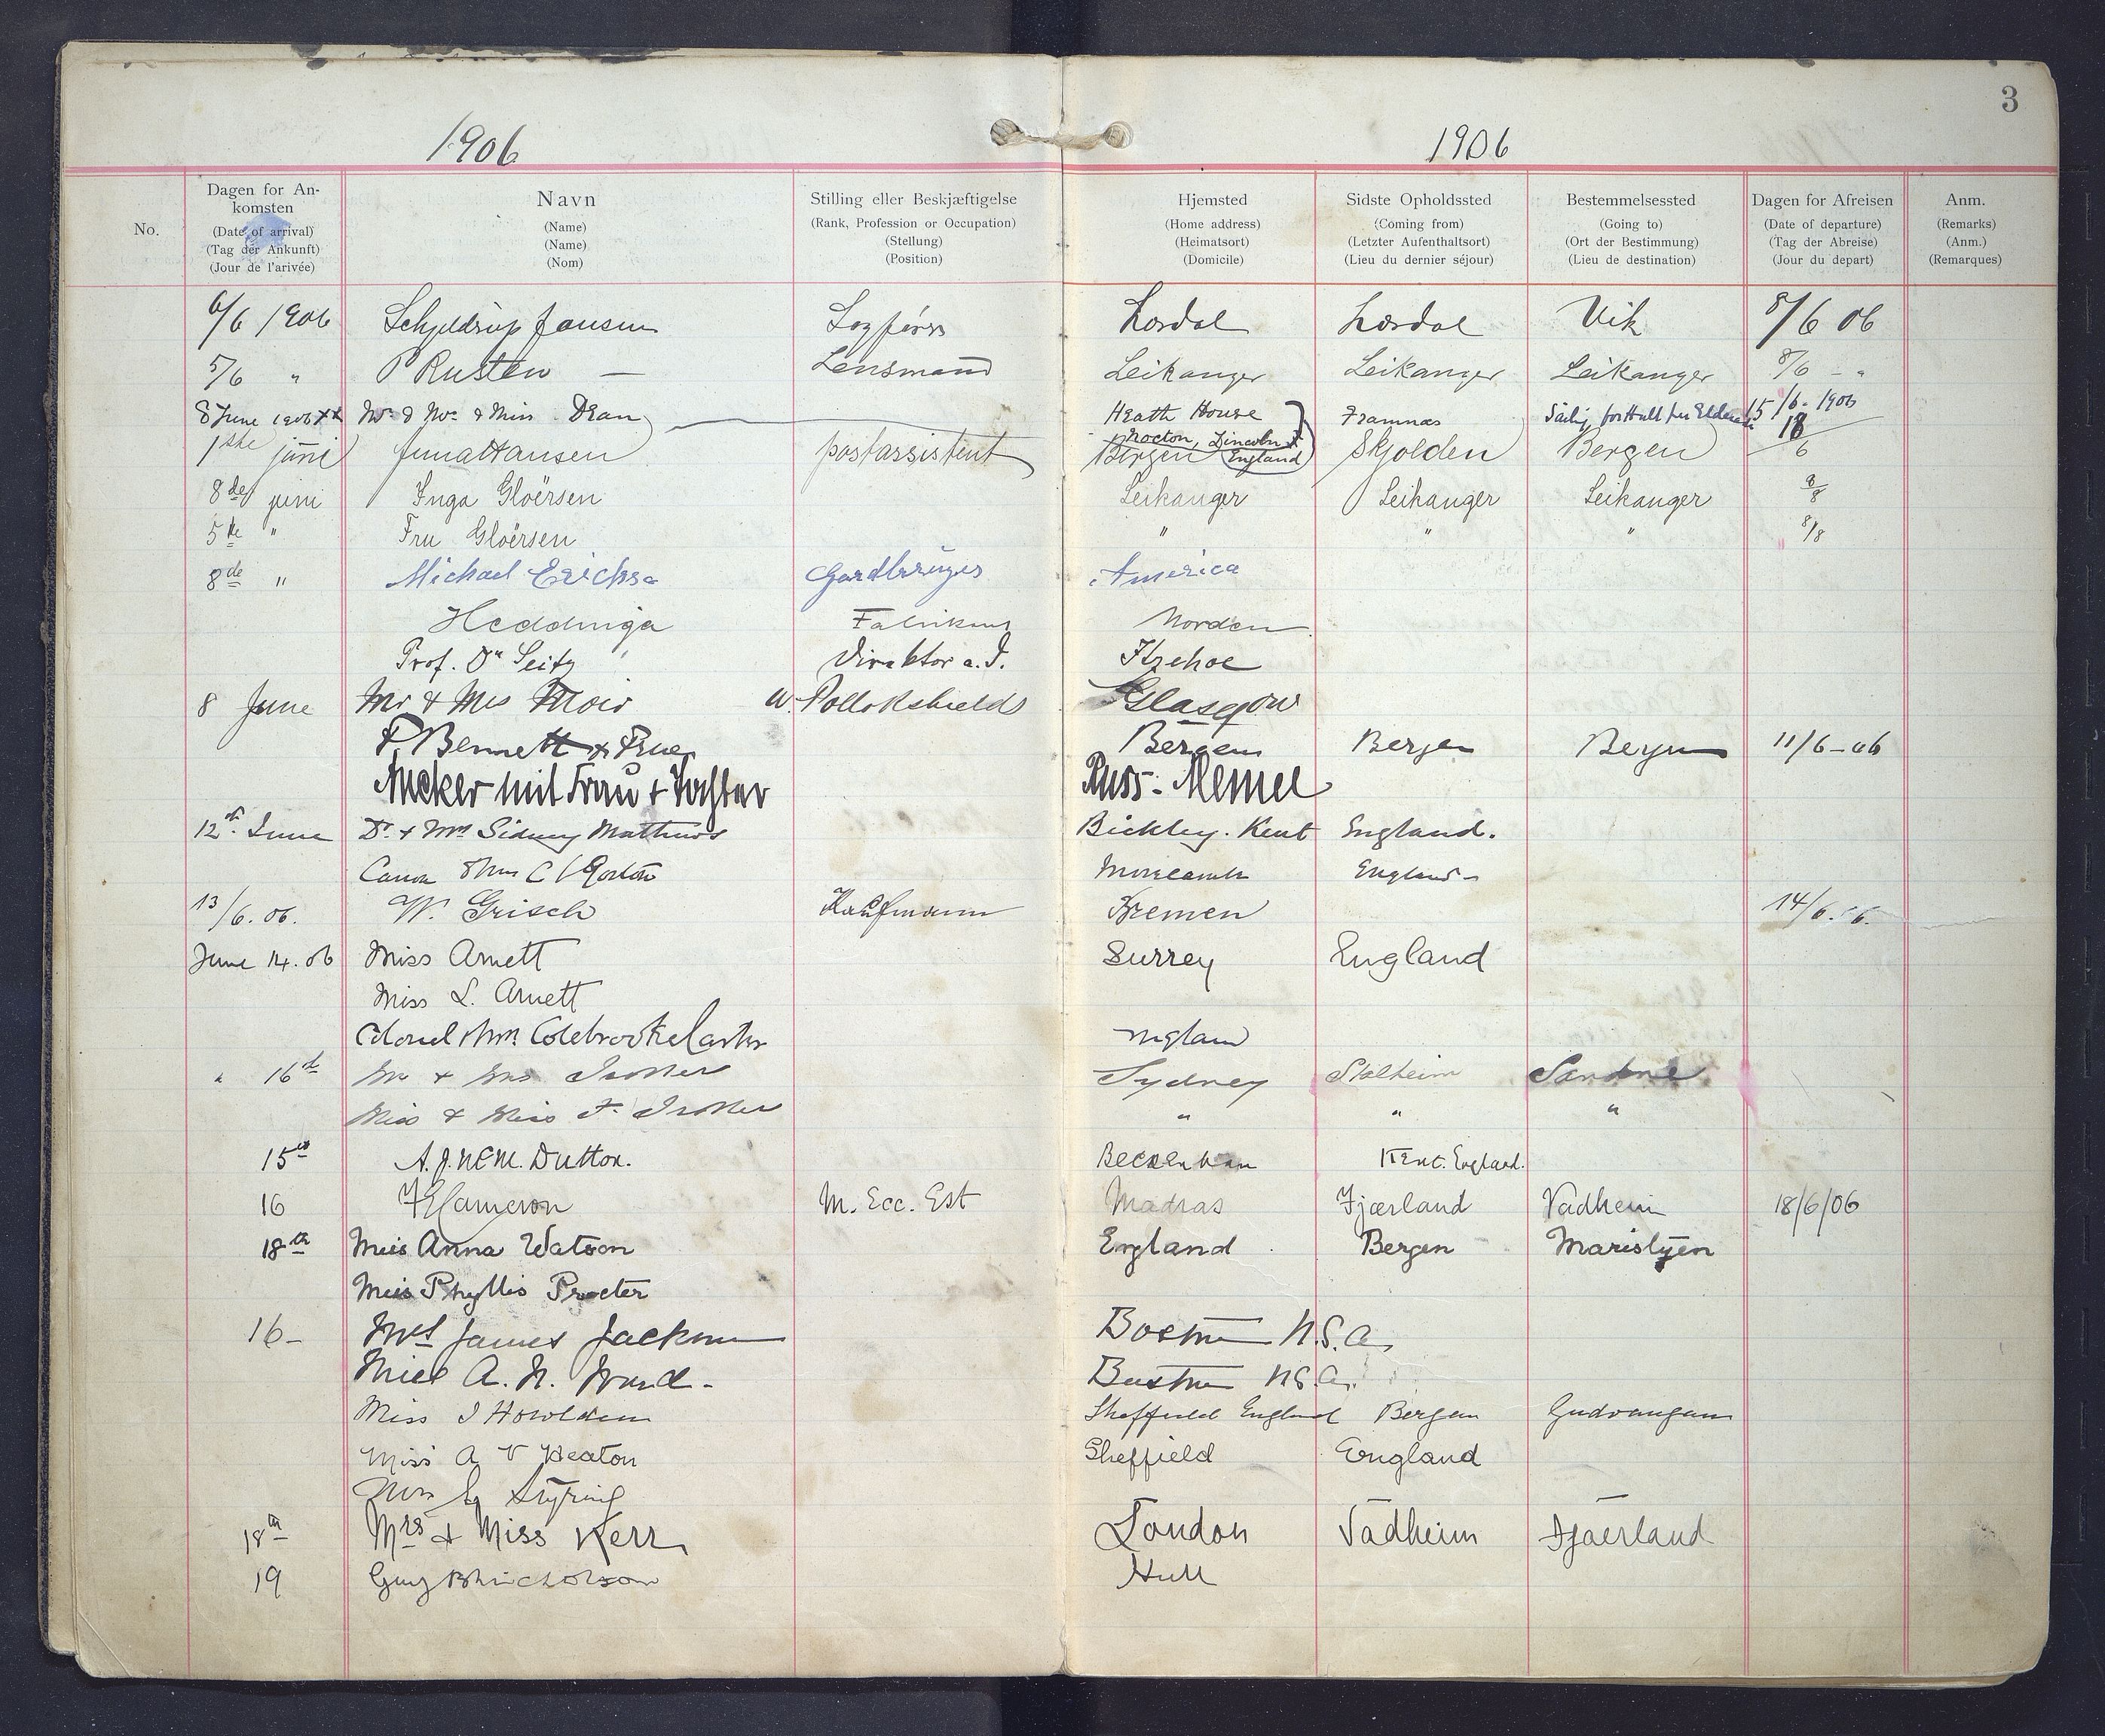 3
1906 1906
No. Dagen for Ankomsten (Date of arrival) (Tag der Ankunft) (Jour de l'arivée) Navn (Name) (Name) (Nom) Stilling eller Beskjæftigelse (Rank, Profession or Occupation) (Stellung) (Position) Hjemsted (Home address) (Heimatsort) (Domicile) Sidste Opholdssted (Coming from) (Letzter Aufenthaltsort) (Lieu du dernier séjour) Bestemmelsessted (Going to) (Ort der Bestimmung) (Lieu de destination) Dagen for Afreisen (Date of departure) (Tag der Abreise) (Jour du depart) Anm. (Remarks) (Anm.) (Remarques)
6/6 1906 Schjeldrup Jansen Sagfører Lærdal Lærdal Vik 8/6 06
5/6 " P Rusten — Lensmand Leikanger Leikanger Leikanger 8/6 - "
8 June 1906 Mr & Mrs & Miss Dean Heath House Nocton, Lincoln England Framnæs 15/6-1906
1ste juni Hansen postassistent Bergen Skjolden Bergen 18/6
8de juni Inga Gloërsen Leikanger Leikanger Leikanger 8/8
5te " Fru Gloërsen " " " 8/8
8de " Michael Gardbruger America
Heddinga Norden
Prof. Dr Seitz Direktor a. D. Itzehoe
8 June Mr & Mrs Moir W. Pollokshields Glasgow
F. Bennett & Frue Bergen Bergen Bergen 11/6-06
Ancker mit Frau & Tochter Russ: Memel
12th June Dr. & Mrs Sidney Matthews Bickley. Kent England.
Canon & Mrs C Gorton Morecambe England-
13/6.06. W. Grisch Kaufmann Bremen 14/6.06.
June 14.06 Miss Arnett Surrey England
Miss L. Arnett
Colonel & Mrs Colebrooke Carter England
" 16th Mr & Mrs Sydney Stalheim Sandene
Miss & Miss F. " " "
15th A. J. Dutton. Beckenham Kent. England.
16 Cameron M. Ecc. Est Madras Fjærland Vadheim 18/6/06
18th Miss Anna Watson England Bergen Maristuen
Miss Phyllis Procter
16- Mrs James Jackson Boston U.S.A.
Miss A. N. Ward- Boston U.S.A.
Miss Sheffield England Bergen Gudvangen
Miss A V Heaton Sheffield England
Styring
18th Mrs & Miss Kerr London Vadheim Fjaerland
19 Guy B Nicholson Hull